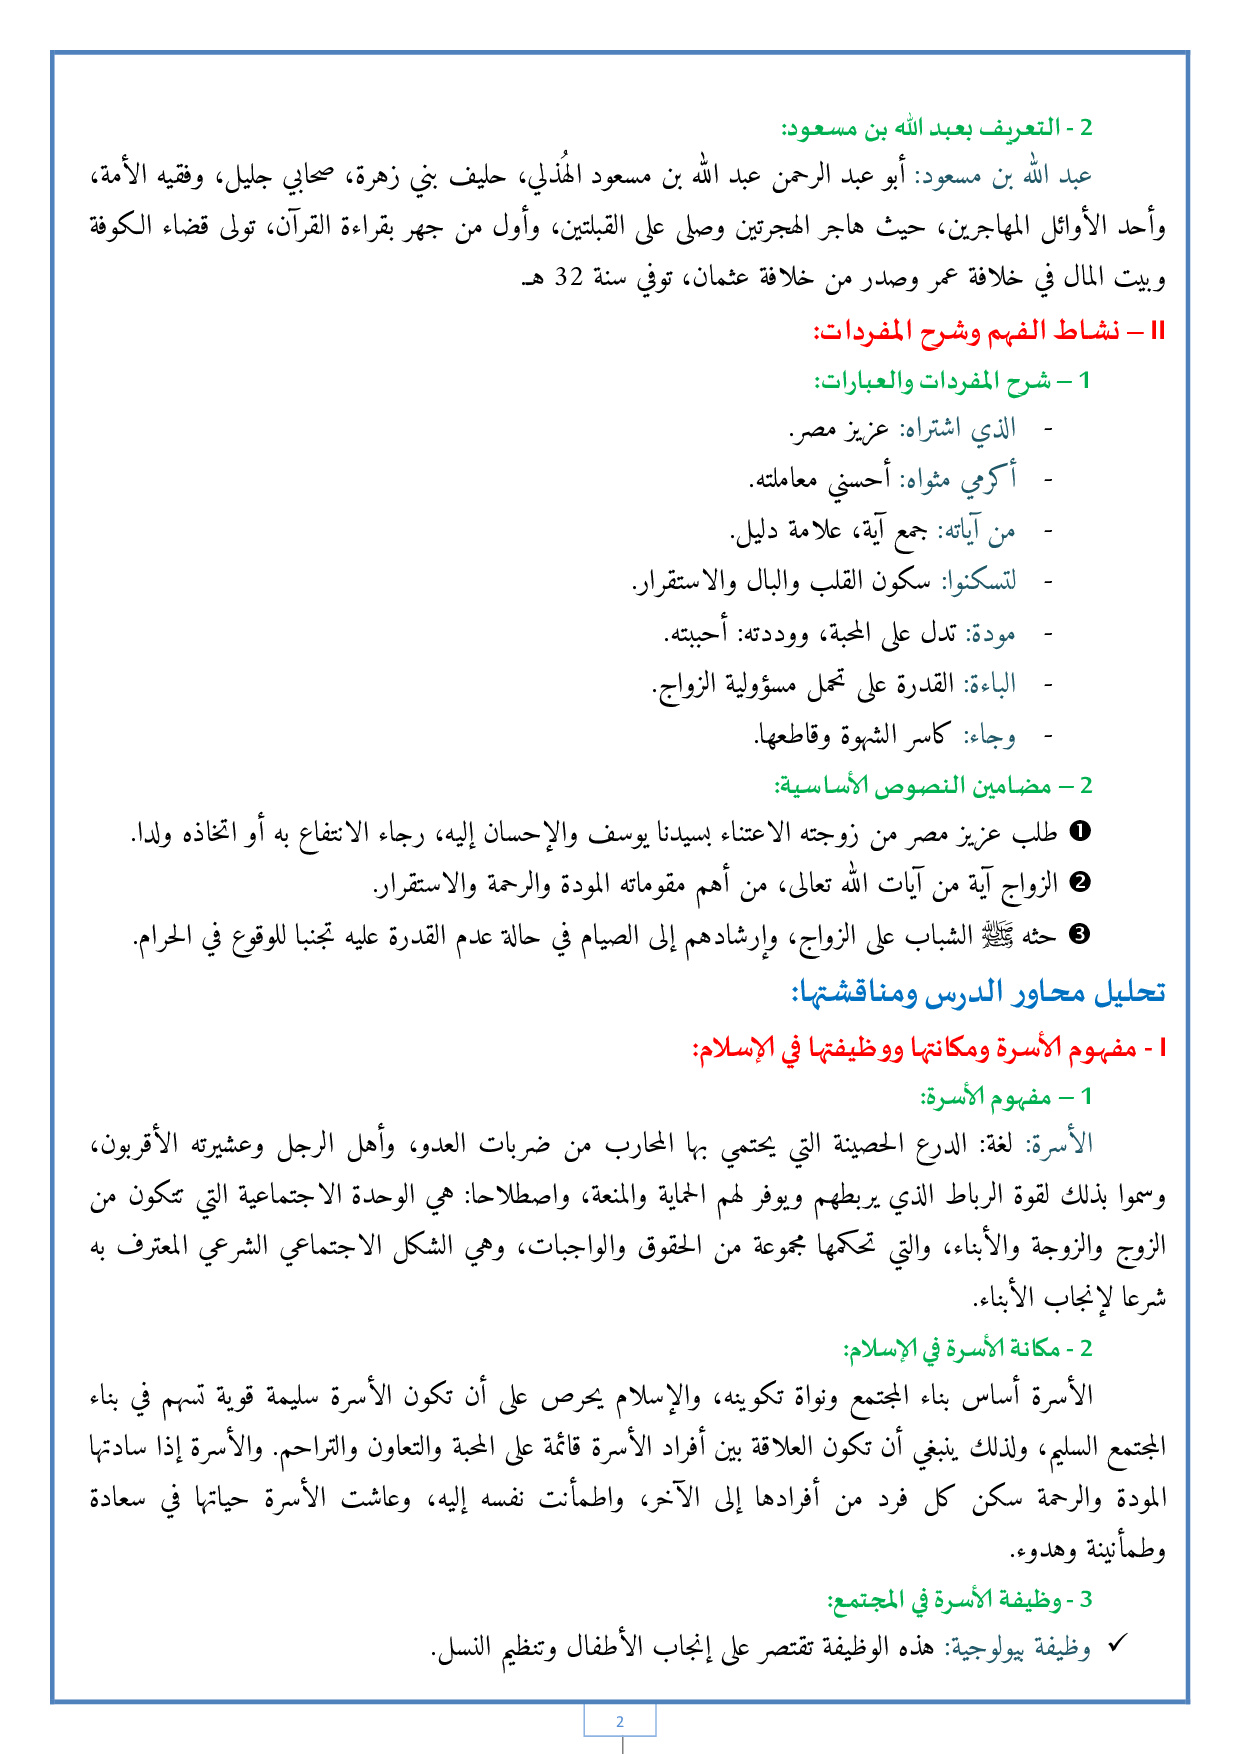 2 - التعريف بعبد الله بن مسعود:
عبد الله بن مسعود: أبو عبد الرحمن عبد الله بن مسعود الهُذلي، حليف بني زهرة، صحابي جليل، وفقيه الأمة،
وأحد الأوائل المهاجرين، حيث هاجر الهجرتين وصلى على القبلتين، وأول من جهر بقراءة القرآن، تولى قضاء الكوفة
وبيت المال في خلافة عمر وصدر من خلافة عثمان، توفي سنة 32 هـ.
II – نشاط الفهم وشرح المفردات:
1 – شرح المفردات والعبارات:
- الذي اشتراه: عزيز مصر.
- أكرمي مثواه: أحسني معاملته.
- من آياته: جمع آية، علامة دليل.
- لتسكنوا: سكون القلب والبال والاستقرار.
- مودة: تدل على المحبة، ووددته: أحببته.
- الباءة: القدرة على تحمل مسؤولية الزواج.
- وجاء: كاسر الشهوة وقاطعها.
2 – مضامين النصوص الأساسية:
❶ طلب عزيز مصر من زوجته الاعتناء بسيدنا يوسف والإحسان إليه، رجاء الانتفاع به أو اتخاذه ولدا.
❷ الزواج آية من آيات الله تعالى، من أهم مقوماته المودة والرحمة والاستقرار.
❸ حثه ﷺ الشباب على الزواج، وإرشادهم إلى الصيام في حالة عدم القدرة عليه تجنبا للوقوع في الحرام.
تحليل محاور الدرس ومناقشتها:
I - مفهوم الأسرة ومكانتها ووظيفتها في الإسلام:
1 – مفهوم الأسرة:
الأسرة: لغة: الدرع الحصينة التي يحتمي بها المحارب من ضربات العدو، وأهل الرجل وعشيرته الأقربون،
وسموا بذلك لقوة الرباط الذي يربطهم ويوفر لهم الحماية والمنعة، واصطلاحا: هي الوحدة الاجتماعية التي تتكون من
الزوج والزوجة والأبناء، والتي تحكمها مجموعة من الحقوق والواجبات، وهي الشكل الاجتماعي الشرعي المعترف به
شرعا لإنجاب الأبناء.
2 - مكانة الأسرة في الإسلام:
الأسرة أساس بناء المجتمع ونواة تكوينه، والإسلام يحرص على أن تكون الأسرة سليمة قوية تسهم في بناء
المجتمع السليم، ولذلك ينبغي أن تكون العلاقة بين أفراد الأسرة قائمة على المحبة والتعاون والتراحم. والأسرة إذا سادتها
المودة والرحمة سكن كل فرد من أفرادها إلى الآخر، واطمأنت نفسه إليه، وعاشت الأسرة حياتها في سعادة
وطمأنينة وهدوء.
3 - وظيفة الأسرة في المجتمع:
✓ وظيفة بيولوجية: هذه الوظيفة تقتصر على إنجاب الأطفال وتنظيم النسل.
2